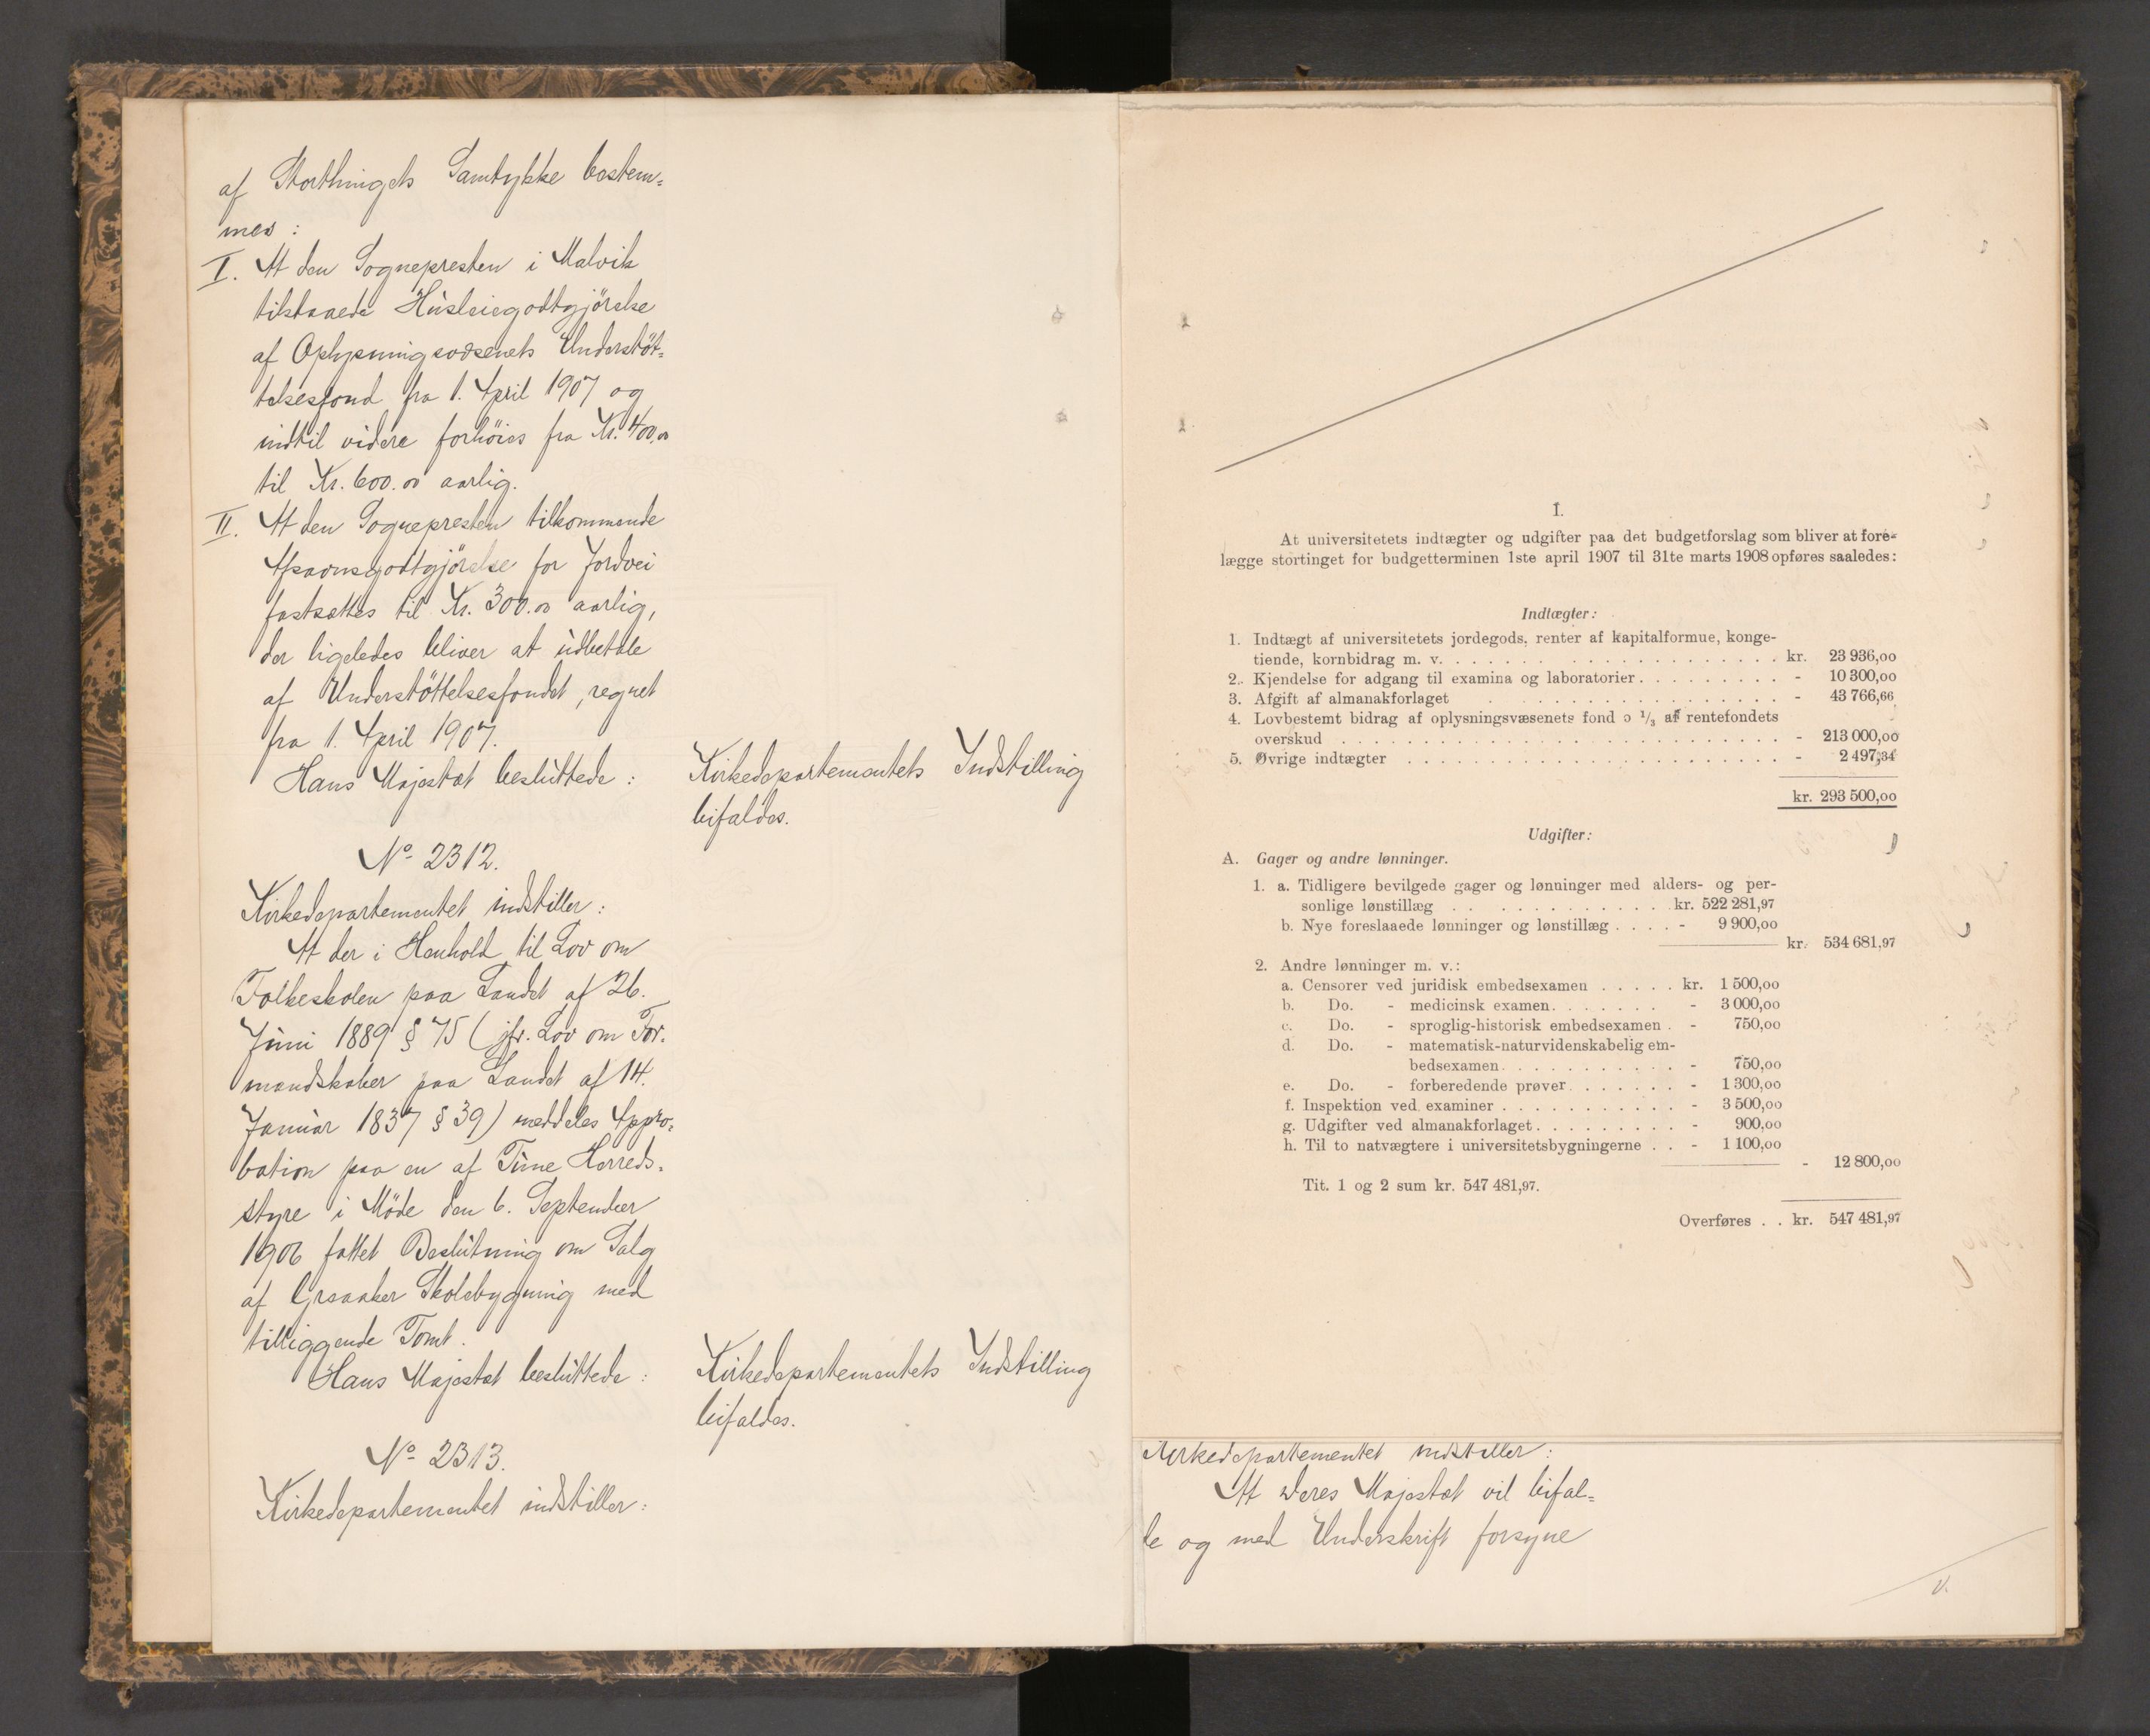 af Storthingets Samtykke bestem=
mes :
I. At den Sognepresten i Malvik
tilstaaede Husleiegodtgjörelse
af Oplysningsvæsenets Understöt=
telsesfond fra 1. April 1907 og
indtil videre forhöies fra Kr. 400.00
til Kr. 600.00 aarlig.
II. At den Sognepresten tilkommende
Afsavnsgodtgjörelse for Jordvei
fastsættes til Kr. 300.00 aarlig,
der ligeledes bliver at udbetale
af Understöttelsesfondet, regnet
fra 1. April 1907.
Hans Majestæt besluttede :
Kirkedepartementets Indstilling
bifaldes.
No 2312.
Kirkedepartementet indstiller :
At der i Henhold til Lov om
Folkeskolen paa Landet af 26.
Juni 1889 § 75 (jfr. Lov om For-
mandskaber paa Landet af 14.
Januar 1837 § 39) meddeles Appro=
bation paa en af Time Herreds-
styre i Möde den 6. September
1906 fattet Beslutning om Salg
af Graaker Skolebygning med
tilliggende Tomt.
Hans Majestæt besluttede :
Kirkedepartementets Indstilling
bifaldes.
No 2313.
Kirkedepartementet indstiller :
I.
At universitetets indtægter og udgifter paa det budgetforslag som bliver at fore-
lægge stortinget for budgetterminen 1ste april 1907 til 31te marts 1908 opføres saaledes:
Indtægter:
1. Indtægt af universitetets jordegods, renter af kapitalformue, konge-
tiende, kornbidrag m. v. . . . . . . . . . . . . . . . . . . . . kr. 23 936,00
2. Kjendelse for adgang til examina og laboratorier . . . . . . . . . - 10 300,00
3. Afgift af almanakforlaget . . . . . . . . . . . . . . . - 43 766,66
4. Lovbestemt bidrag af oplysningsvæsenets fond o 1/3 af rentefondets
overskud . . . . . . . . . . . . . . . . . . . . . . . . - 213 000,00
5. Øvrige indtægter . . . . . . . . . . . . . . . . . . . . - 2 497,34
kr. 293 500,00
Udgifter:
A. Gager og andre lønninger.
1. a. Tidligere bevilgede gager og lønninger med alders- og per-
sonlige lønstillæg . . . . . . . . . . . . kr. 522 281,97
b. Nye foreslaaede lønninger og lønstillæg . . . . - 9 900,00
kr. 534 681,97
2. Andre lønninger m. v.:
a. Censorer ved juridisk embedsexamen . . . . . kr. 1 500,00
b. Do. - medicinsk examen . . . . . . . - 3 000,00
c. Do. - sproglig-historisk embedsexamen . - 750,00
d. Do. - matematisk-naturvidenskabelig em-
bedsexamen . . . . . . . . . . . - 750,00
e. Do. - forberedende prøver . . . . . . - 1 300,00
f. Inspektion ved examiner . . . . . . . . . . . - 3 500,00
g. Udgifter ved almanakforlaget . . . . . . . . . - 900,00
h. Til to natvægtere i universitetsbygningerne . . - 1 100,00
- 12 800,00
Tit. 1 og 2 sum kr. 547 481,97.
Overføres . . kr. 547 481,97
Kirkedepartementet indstiller :
At Deres Majestæt vil bifal=
de og med Underskrift forsyne
V.